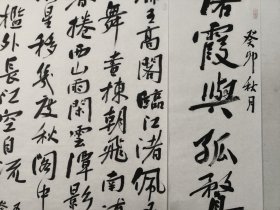 癸卯秋月
落霞與孤鶩
王高閣臨江渚佩
舞畫棟朝飛南浦
捲西山雨閑雲潭影
星移幾度秋閣中
檻外長江空自流